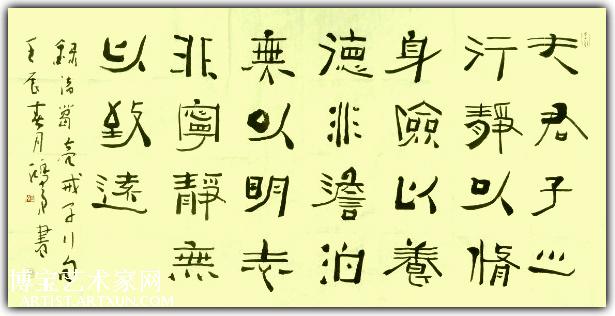 夫君子之
行靜以脩
身險以養
德非澹泊
無以明志
非寧靜無
以致遠
錄諸葛亮戒子句
壬辰春月書
博宝艺术家网
ARTIST.ARTXUN.COM